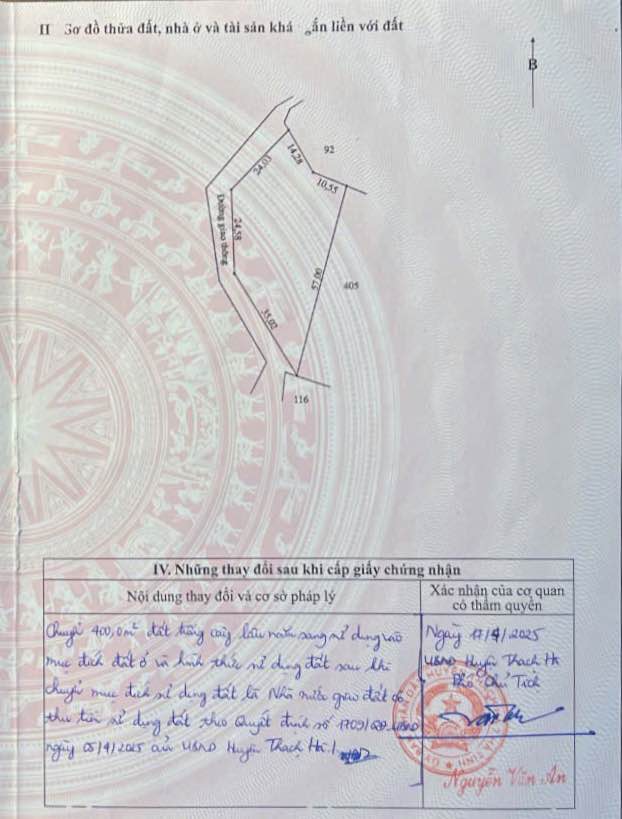 II Sơ đồ thửa đất, nhà ở và tài sản khá gắn liền với đất
B
92
14,28
24,03
10,55
Đường giao thông
24,58
57,00
405
35,02
116
IV. Những thay đổi sau khi cấp giấy chứng nhận
Nội dung thay đổi và cơ sở pháp lý
Xác nhận của cơ quan
có thẩm quyền
Chuyển 400,0m² đất trồng cây lâu năm sang sử dụng vào
mục đích đất ở và hình thức sử dụng đất sau khi
chuyển mục đích sử dụng đất là Nhà nước giao đất có
thu tiền sử dụng đất theo Quyết định số 1709/QĐ-UBND
ngày 05/4/2025 của UBND Huyện Thạch Hà./.
Ngày 17/4/2025
UBND Huyện Thạch Hà
Phó Chủ Tịch
Nguyễn Văn An